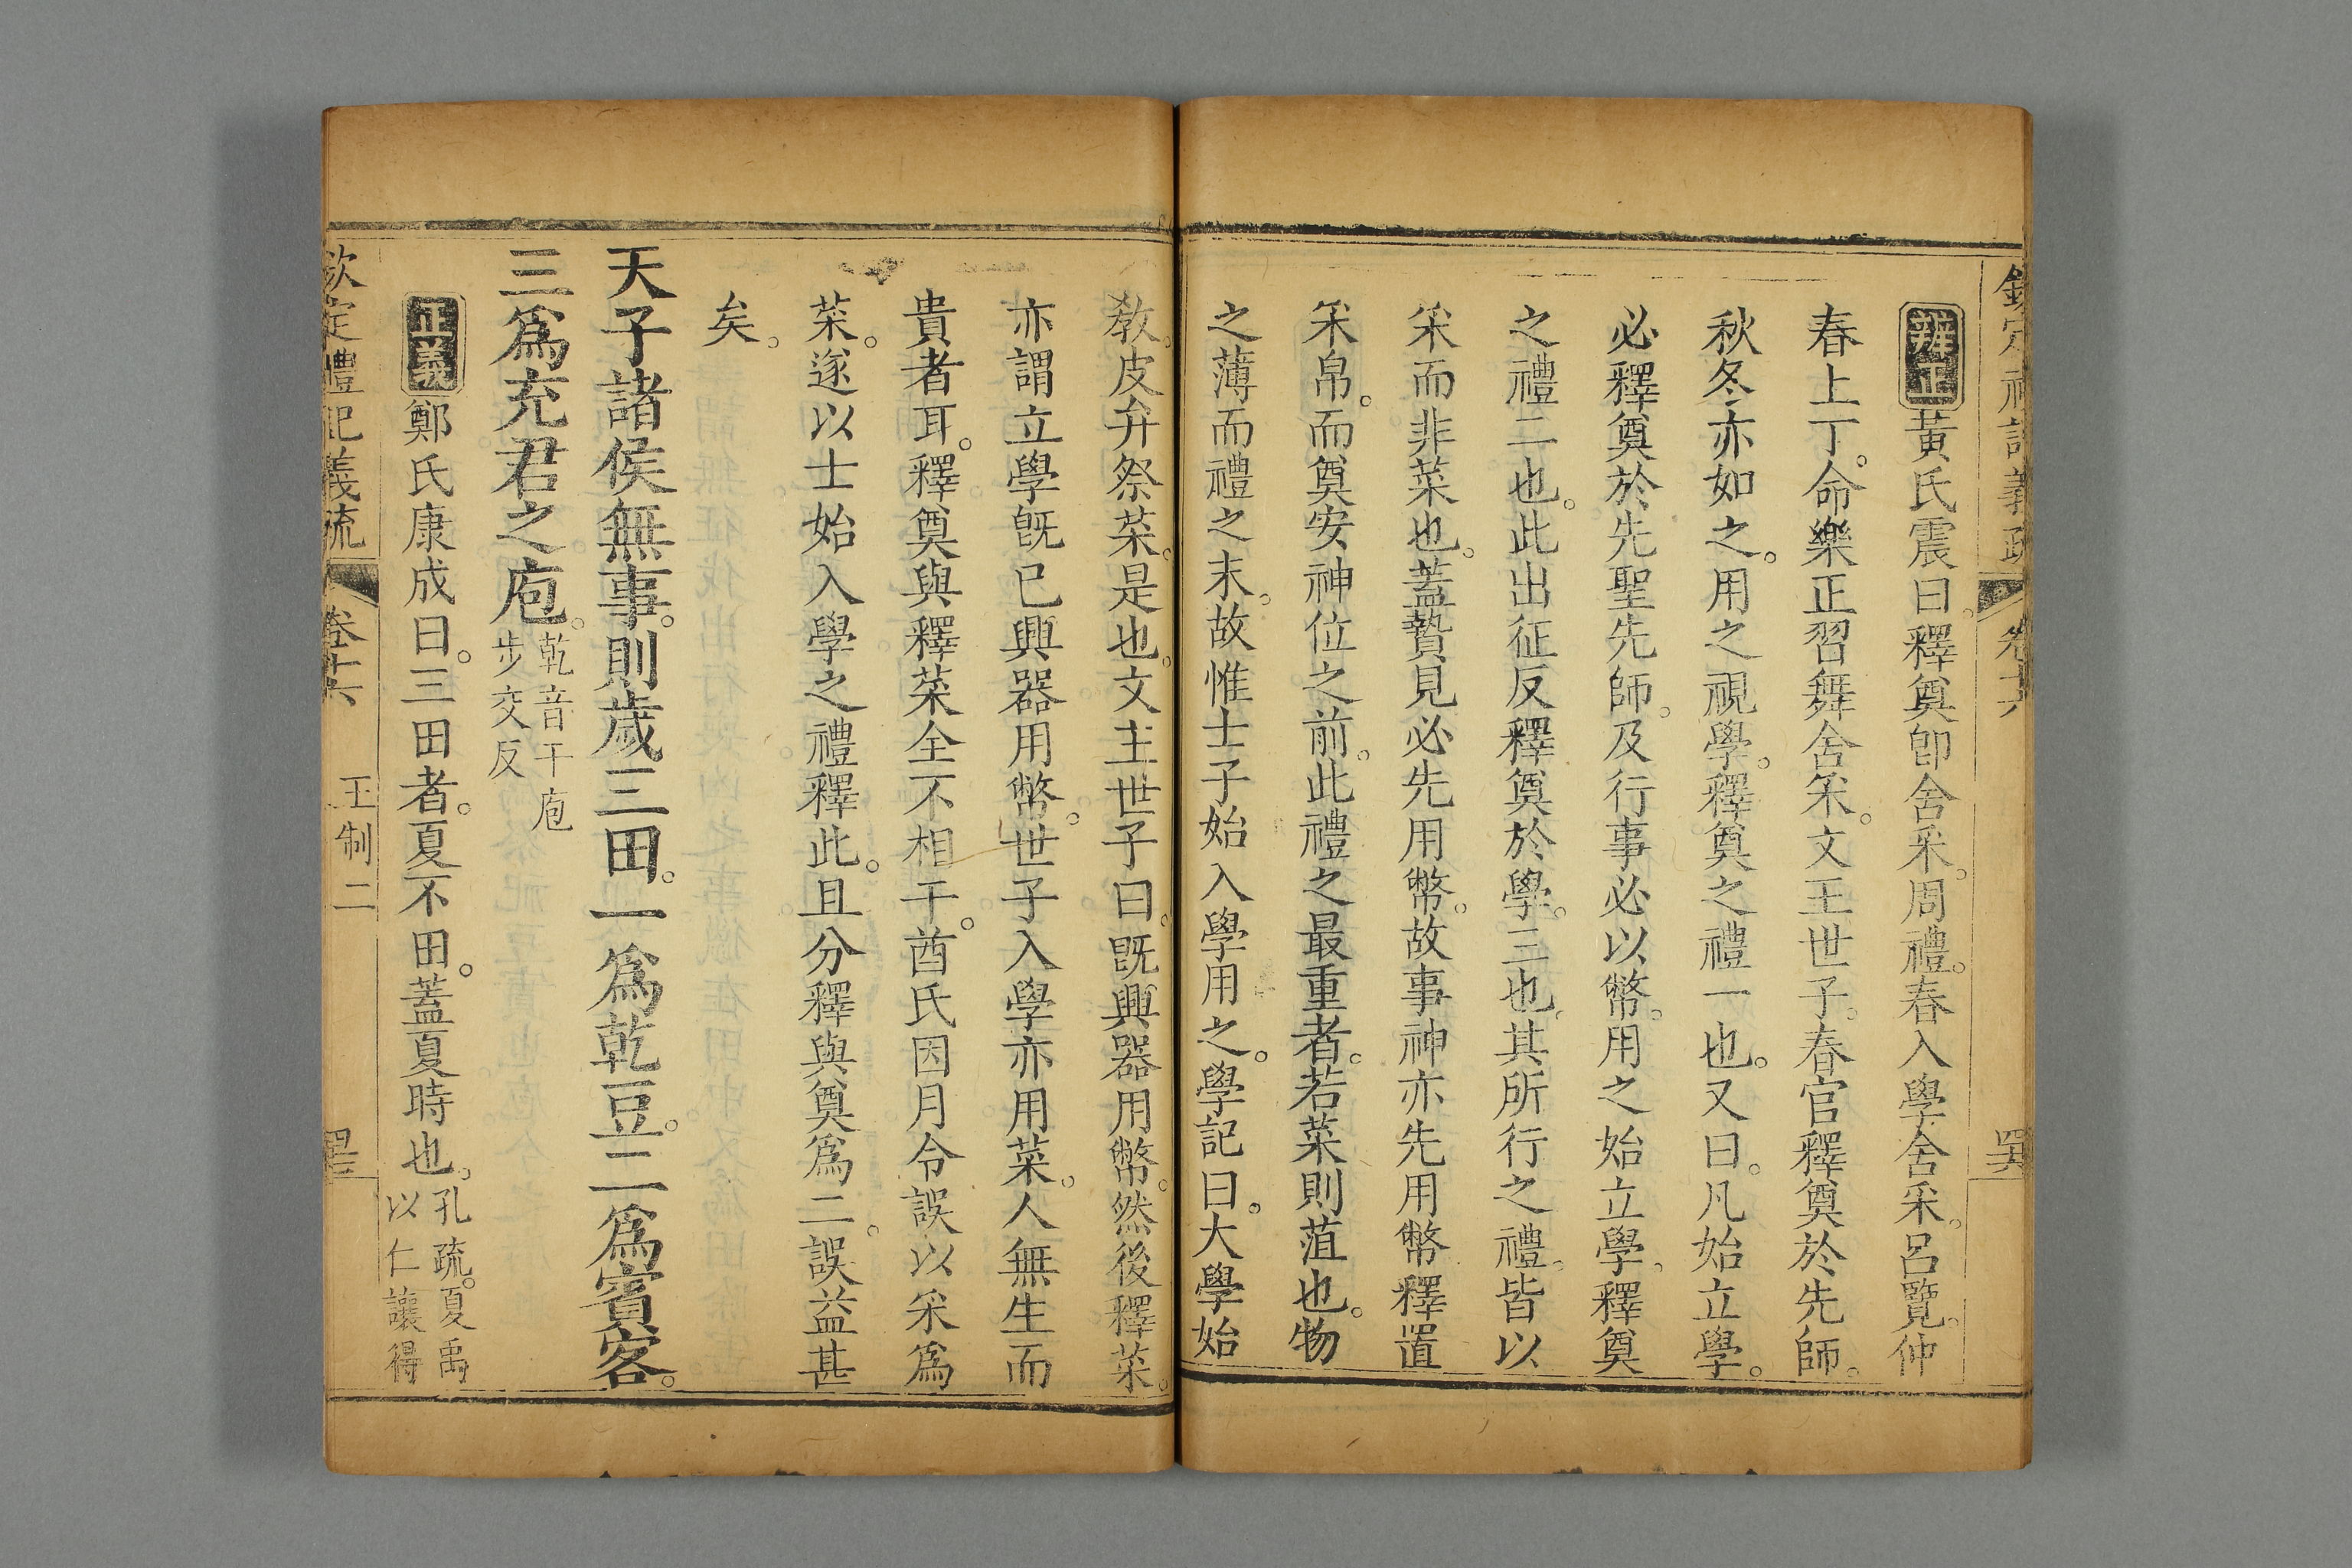 欽定禮記義疏 卷十六
辨正黃氏震曰。釋奠卽舍采。周禮。春入學。舍采。呂覽。仲
春上丁。命樂正習舞舍采。文王世子。春官釋奠於先師。
秋冬亦如之。用之視學。釋奠之禮一也。又曰。凡始立學。
必釋奠於先聖先師。及行事必以幣。用之始立學。釋奠
之禮二也。此出征反釋奠於學。三也。其所行之禮。皆以
采而非菜也。蓋贄見必先用幣。故事神亦先用幣釋置
采帛。而奠安神位之前。此禮之最重者。若菜則菹也。物
之薄而禮之末。故惟士子始入學用之。學記曰。大學始
敎。皮弁祭菜。是也。文王世子曰。旣興器用幣。然後釋菜。
亦謂立學旣已興器用幣。世子入學亦用菜。人無生而
貴者耳。釋奠與釋菜全不相干。酋氏因月令誤以采爲
菜。遂以士始入學之禮釋此。且分釋與奠爲二。誤益甚
矣。
天子諸侯無事。則歲三田。一爲乾豆。二爲賓客。
三爲充君之庖。乾音干庖
步交反
正義鄭氏康成曰。三田者。夏不田。蓋夏時也。孔疏。夏禹
以仁讓得
欽定禮記義疏 卷十六 王制二